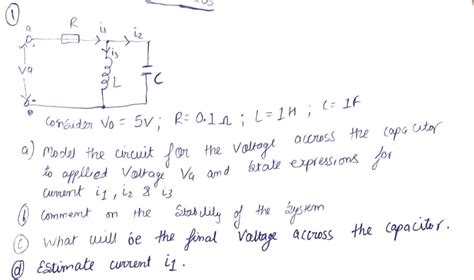 1
R
i1
i2
a
i3
Va
L
C
Consider Vo = 5V ; R = 0.1 Ω ; L = 1H ; C = 1F
a) Model the circuit for the voltage accross the capacitor
to applied Voltage Va and state expressions for
current i1, i2 & i3
b comment on the Stability of the System
c What will be the final Voltage accross the capacitor.
d Estimate current i1.